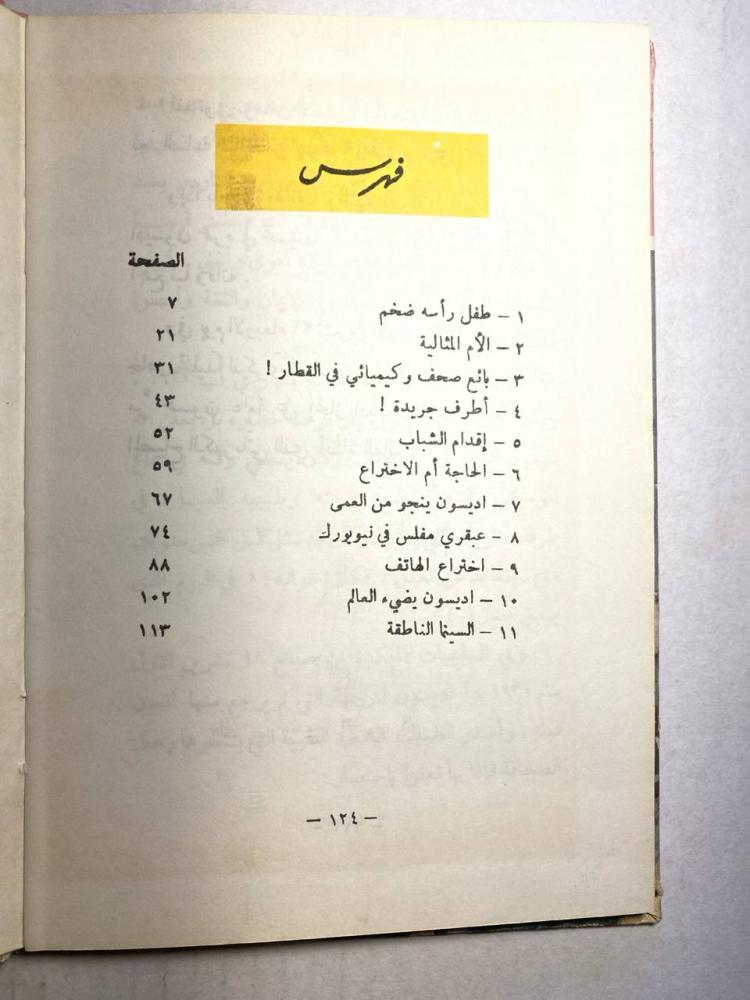 فهرس
الصفحة
١ - طفل رأسه ضخم ٧
٢ - الأم المثالية ٢١
٣ - بائع صحف وكيميائي في القطار ! ٣١
٤ - أطرف جريدة ! ٤٣
٥ - إقدام الشباب ٥٢
٦ - الحاجة أم الاختراع ٥٩
٧ - اديسون ينجو من العمى ٦٧
٨ - عبقري مفلس في نيويورك ٧٤
٩ - اختراع الهاتف ٨٨
١٠ - اديسون يضيء العالم ١٠٢
١١ - السينما الناطقة ١١٣
- ١٢٤ -